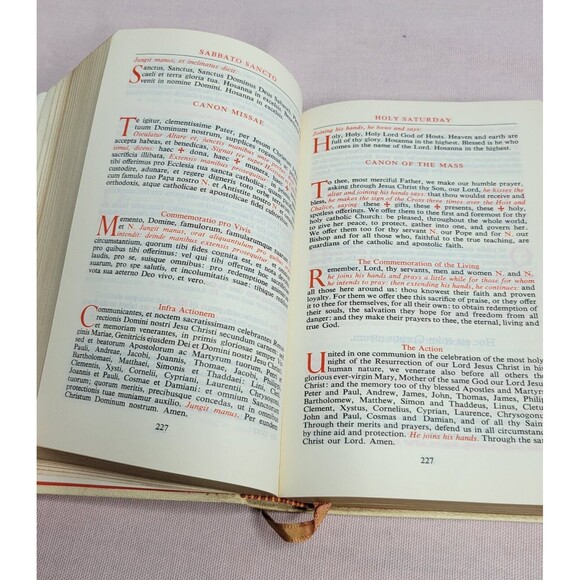 SABBATO SANCTO
Jungit manus, et inclinatus dicit:
Sanctus, Sanctus, Sanctus Dominus Deus Sabaoth. Pleni sunt
caeli et terra gloria tua. Hosanna in excelsis.
venit in nomine Domini. Hosanna in excelsis.
CANON MISSAE
Te igitur, clementissime Pater, per Jesum Christum
tuum Dominum nostrum, supplices
Osculatur Altare et, junctis manibus ante
accepta habeas, et benedicas, Signat ter
simul, dicens: haec ✠ dona, haec ✠ munera, haec
sacrificia illibata, Extensis manibus
tibi offerimus pro Ecclesia tua sancta catholica:
custodire, adunare, et regere digneris toto
famulo tuo Papa nostro N. et Antistite nostro
orthodoxis, atque catholicae et apostolicae fidei
Commemoratio pro Vivis
Memento, Domine, famulorum, famularumque tuarum
et N. Jungit manus, orat aliquantulum
deinde manibus extensis prosequitur:
circumstantium, quorum tibi fides cognita est, et nota
pro quibus tibi offerimus: vel qui tibi offerunt
pro se, suisque omnibus: pro redemptione
suarum, pro spe salutis, et incolumitatis suae:
vota sua aeterno Deo vivo, et vero.
Infra Actionem
Communicantes, et noctem sacratissimam celebrantes Resur-
rectionis Domini nostri Jesu Christi secundum carnem:
Mariae, Genitricis ejusdem Dei et Domini nostri Jesu
sed et beatorum Apostolorum ac Martyrum tuorum, Petri et
Pauli, Andreae, Jacobi, Joannis, Thomae, Jacobi,
Bartholomaei, Matthaei, Simonis et Thaddaei: Lini,
Clementis, Xysti, Cornelii, Cypriani, Laurentii, Chrysogoni,
Joannis et Pauli, Cosmae et Damiani, et omnium
quorum meritis, precibusque concedas, ut in omnibus
tuae muniamur auxilio. Jungit manus. Per eumdem
Christum Dominum nostrum. Amen.
227
HOLY SATURDAY
Joining his hands, he bows and says:
Holy, Holy, Holy Lord God of Hosts. Heaven and earth are
full of thy glory. Hosanna in the highest. Blessed is he who
comes in the name of the Lord. Hosanna in the highest.
CANON OF THE MASS
To thee, most merciful Father, we make our humble prayer,
asking through Jesus Christ thy Son, our Lord, he kisses the
altar and joining his hands says: that thou wouldst receive and
bless, he makes the sign of the Cross three times over the Host and
Chalice, saying these ✠ gifts, these ✠ presents, these ✠ holy,
spotless offerings. We offer them to thee first and foremost for thy
holy catholic Church; be pleased, throughout the whole world,
to give her peace, to protect, gather into one, and govern her.
We offer them too for thy servant N. our Pope and for N. our
Bishop and for all those who, faithful to the true teaching, are
guardians of the catholic and apostolic faith.
The Commemoration of the Living
Remember, Lord, thy servants, men and women N. and N.
he joins his hands and prays a little while for those for whom
he intends to pray: then extending his hands, he continues: and
all those here around us: thou knowest their faith and proven
loyalty. For them we offer thee this sacrifice of praise, or they offer
it to thee for themselves, for all their own: to obtain redemption of
their souls, the salvation they hope for and preservation from
danger: and they make their prayers to thee, the eternal, living and
true God.
The Action
United in one communion in the celebration of the most holy
night of the Resurrection of our Lord Jesus Christ in his
human nature, we venerate also before all others the
glorious ever-virgin Mary, Mother of the same God our Lord Jesus
Christ: and the memory too of thy blessed Apostles and Martyrs
Peter and Paul, Andrew, James, John, Thomas, James, Philip
Bartholomew, Matthew, Simon and Thaddeus, Linus, Cletus
Clement, Xystus, Cornelius, Cyprian, Laurence, Chrysogonus
John and Paul, Cosmas and Damian, and of all thy Saints
Through their merits and prayers, defend us in all circumstances
by thine aid and protection. He joins his hands. Through the same
Christ our Lord. Amen.
227